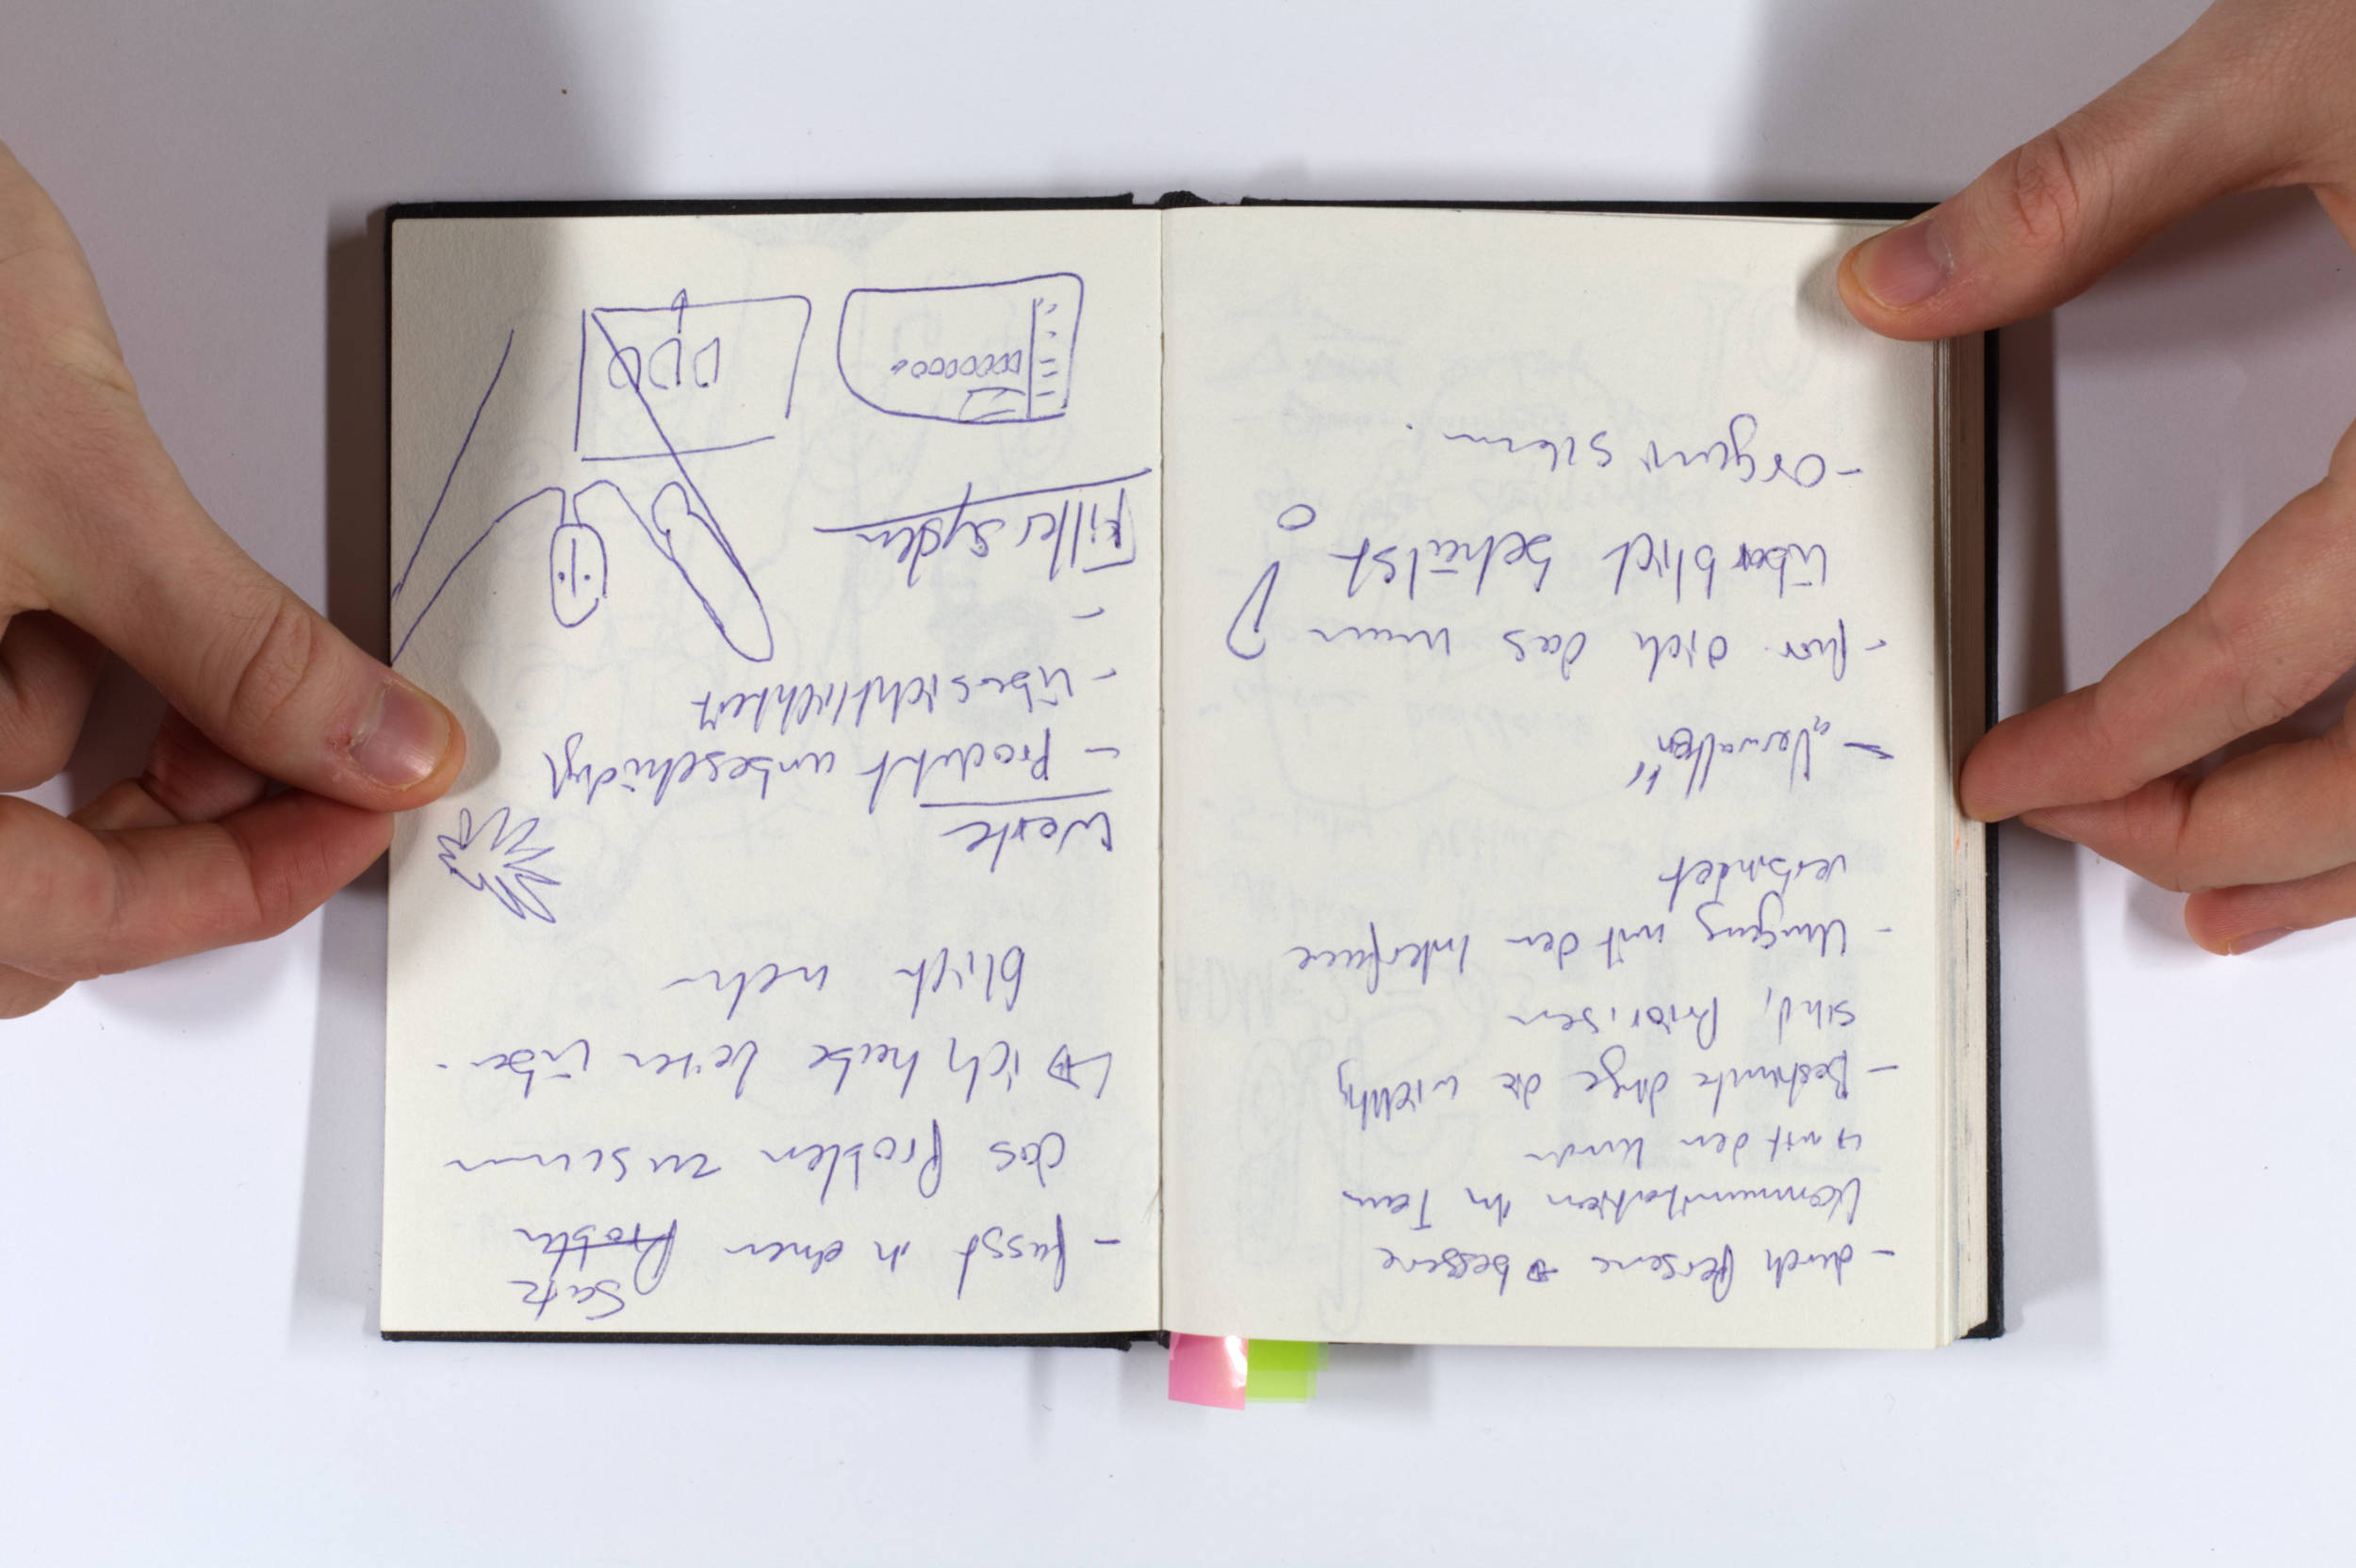 - durch Persona → bessere
Kommunikation in Team
↳ mit den Kunden
- Bestimmte dinge die wichtig
sind, Priorisen
- Umgang mit den Interface
verbindet
- „Verwalten“
- für dich das man
überblick behälst
- Organisieren.
- fasst in einen Problem
Satz
das Problem zusammen
↳ ich habe keinen über-
blick mehr
Werte
- Produkt unbeschädigt
- übersichtlichkeit
-
Filter System